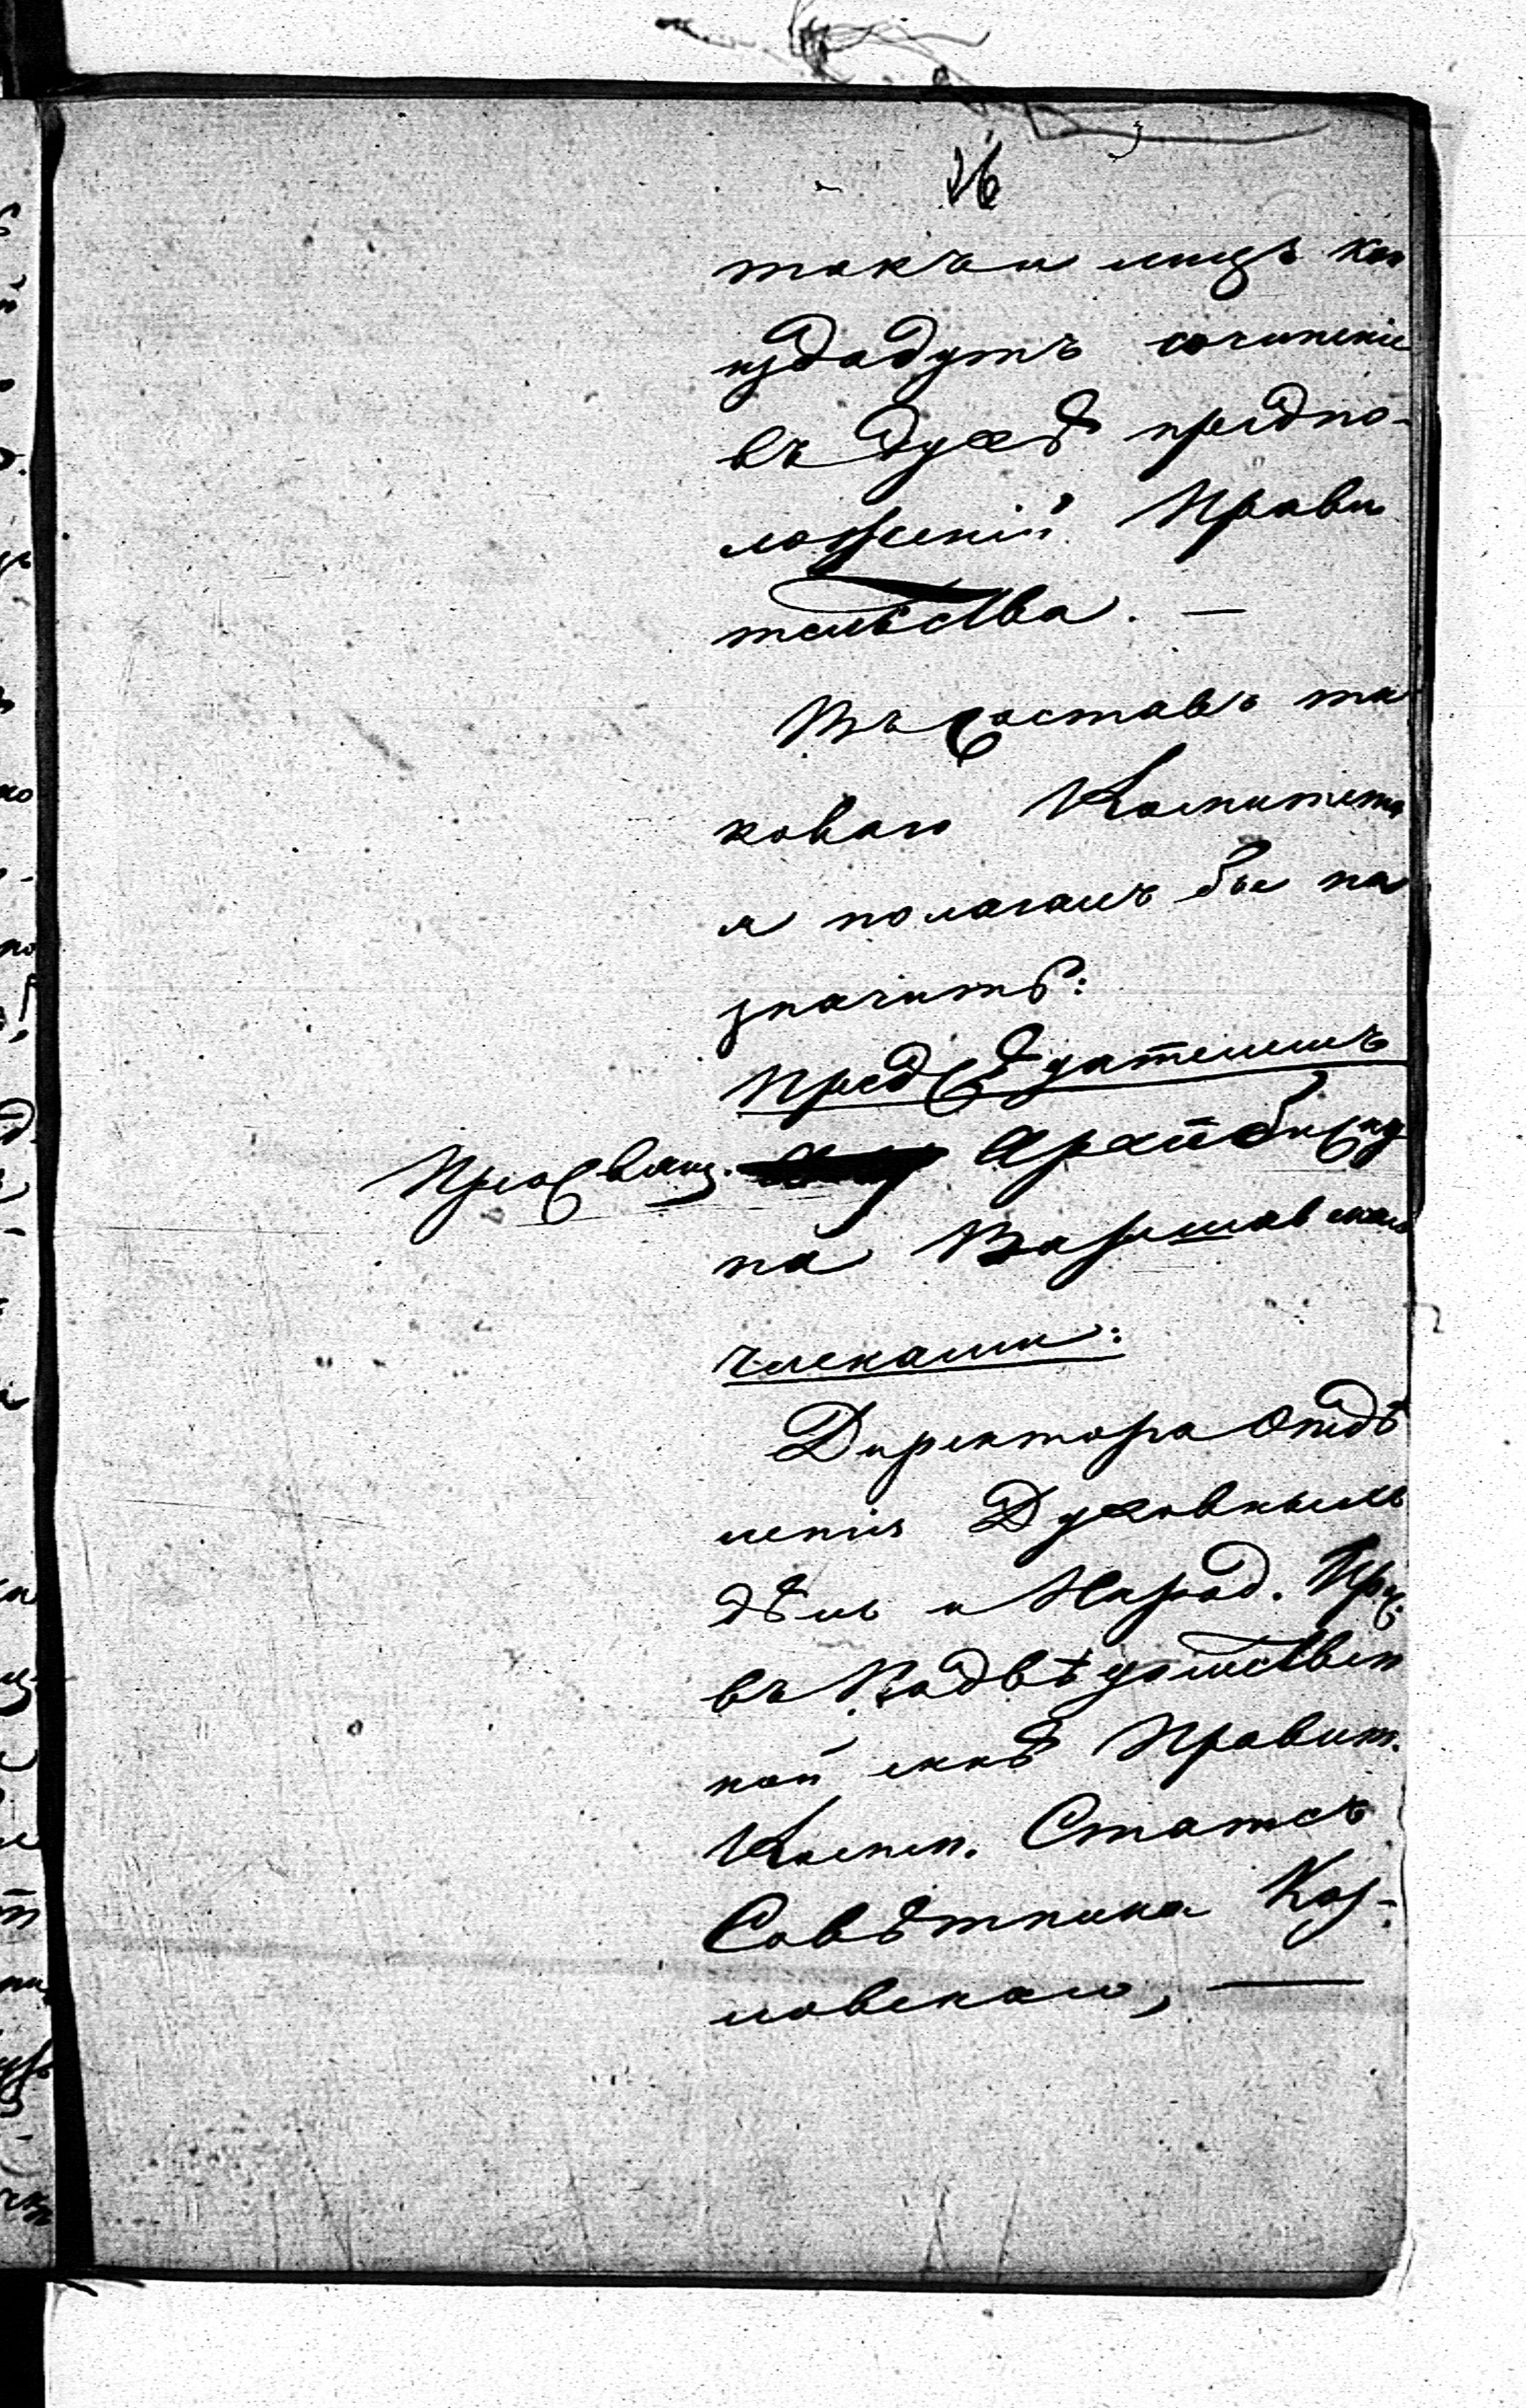 26
такъ и лицъ кои
издадутъ сочиненіе
въ духѣ предпо-
ложеній Прави
тельства. —
Въ составъ та
коваго Комитета
я полагалъ бы на
значить:
Предсѣдателемъ
Преосвящ. Архіепископа
на Варшавскаго
членами:
Директора Отдѣ
ленія Духовныхъ
дѣлъ и Народ. Прос.
въ Подвѣдомствен
ной мнѣ Правит.
Комисс. Статсъ
Совѣтника Коз-
ловскаго, —